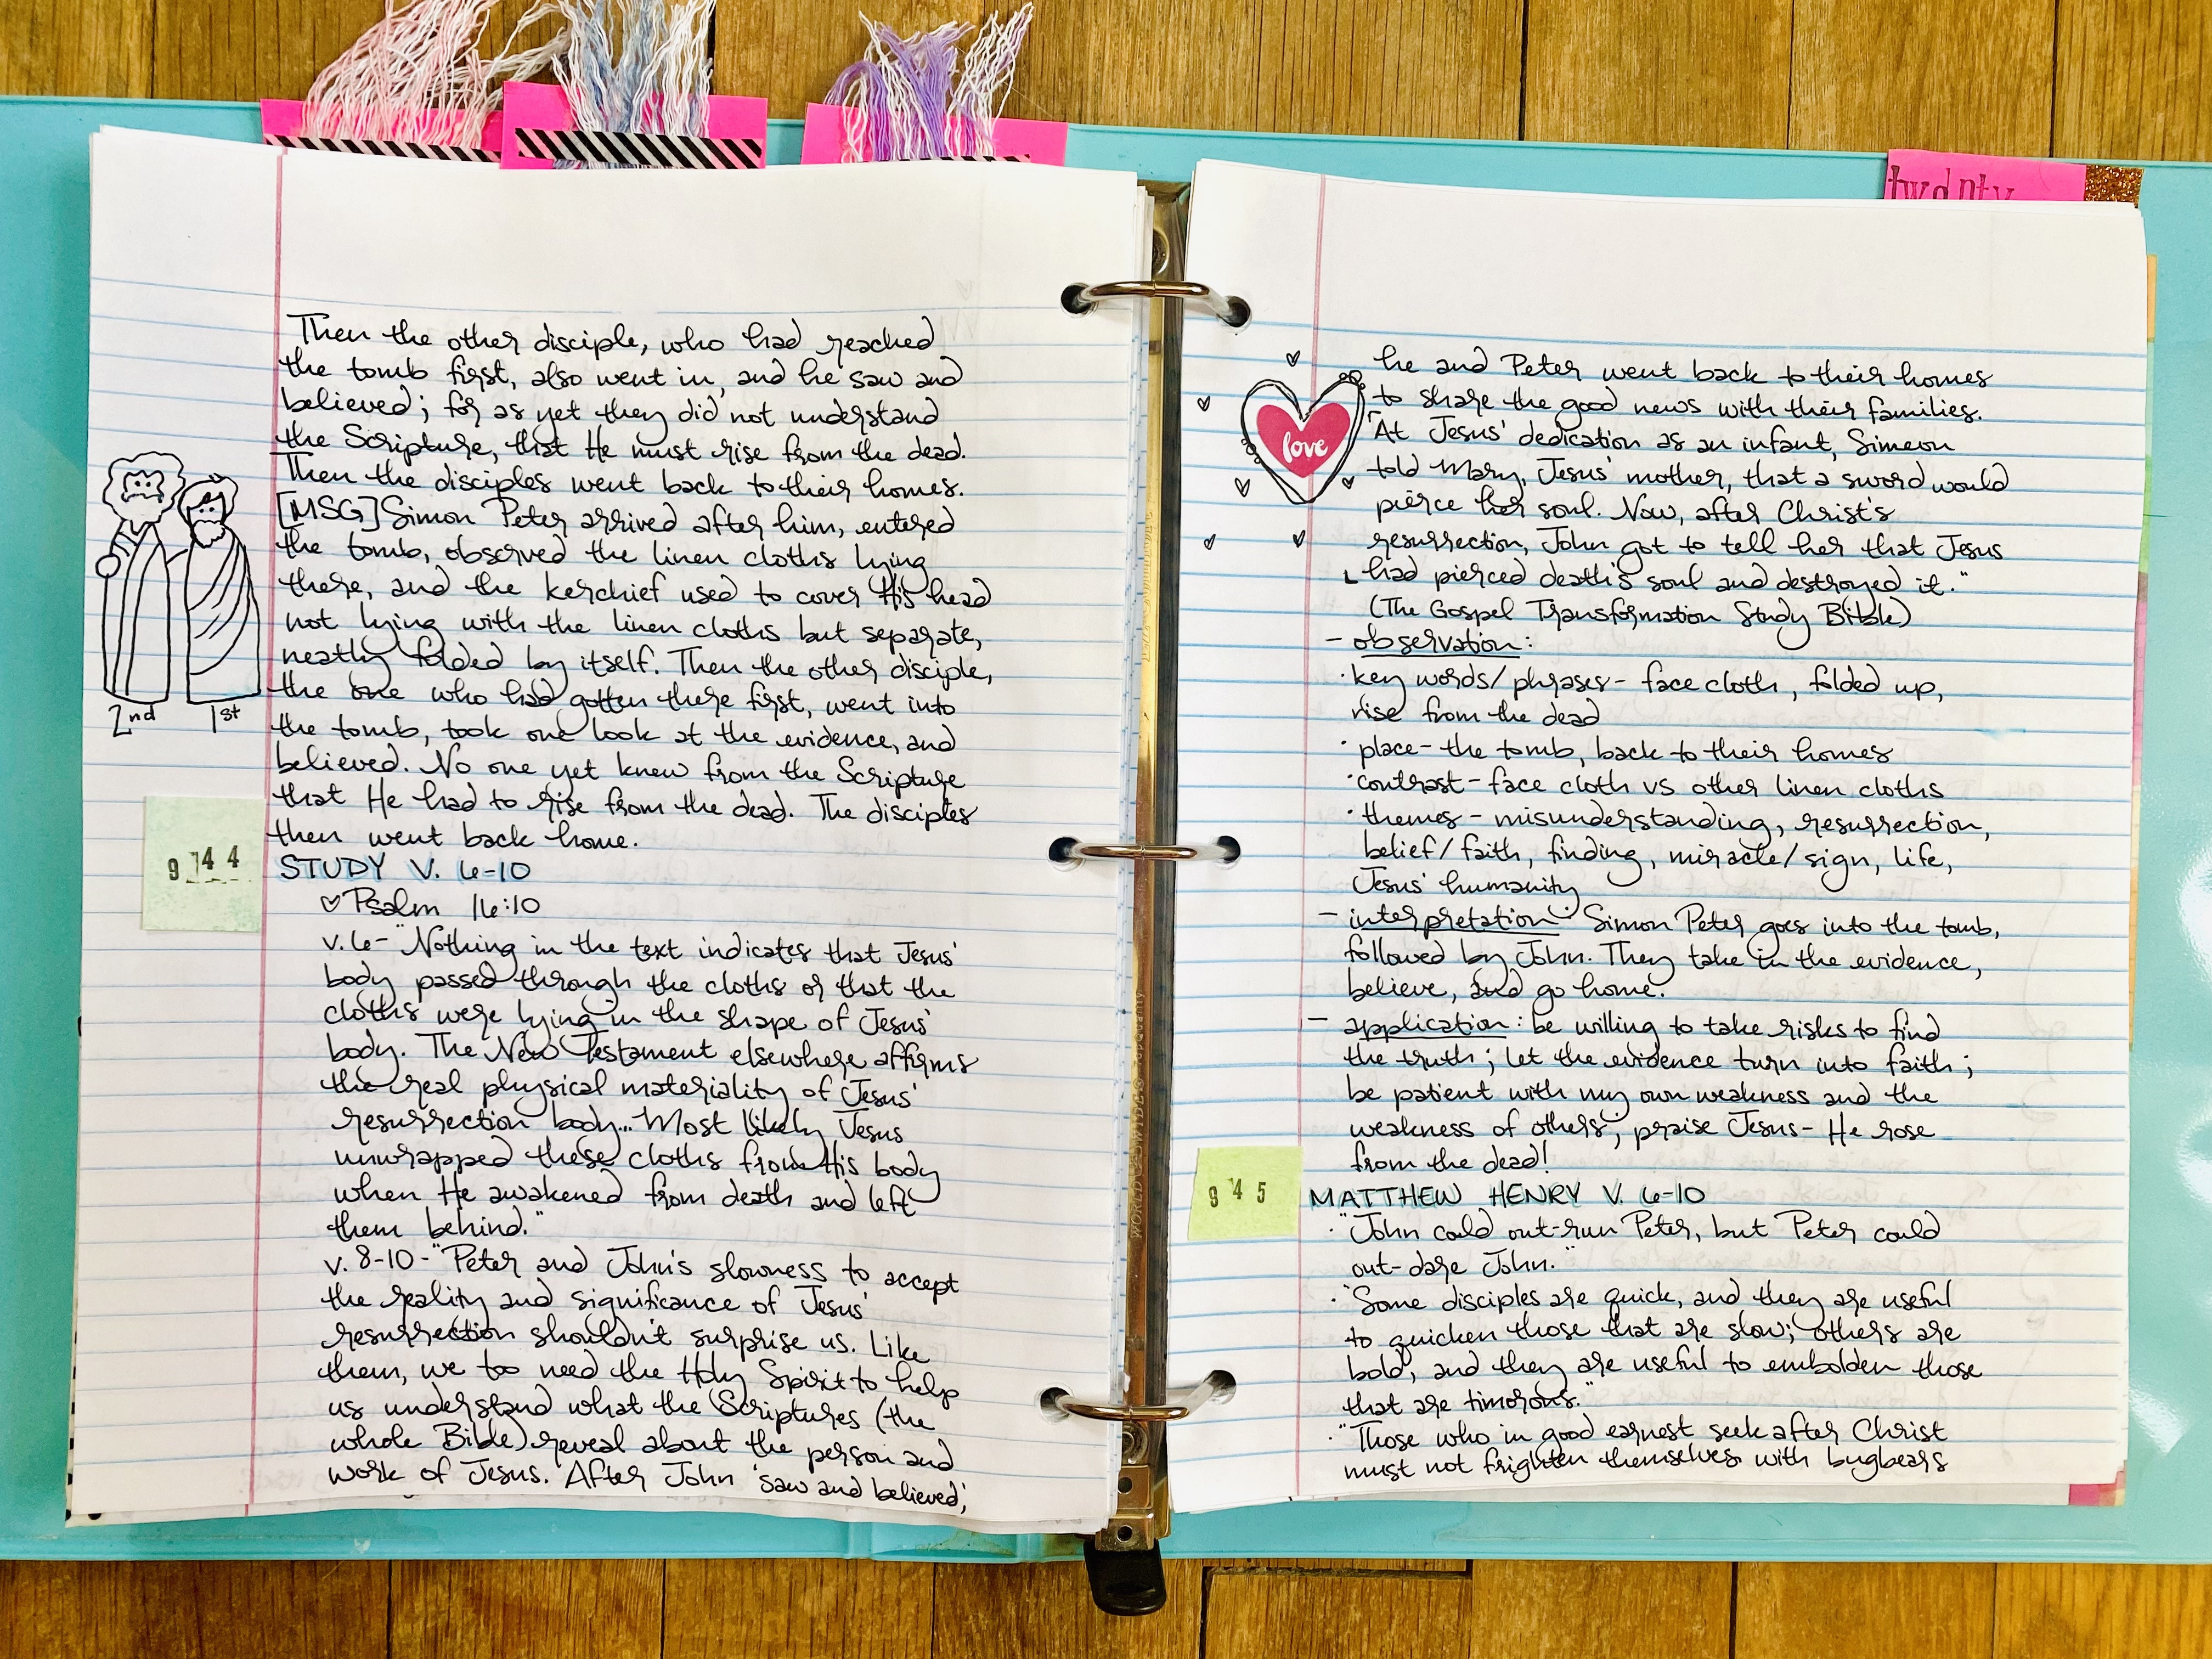 Then the other disciple, who had reached
the tomb first, also went in, and he saw and
believed; for as yet they did not understand
the Scripture, that He must rise from the dead.
Then the disciples went back to their homes.
[MSG] Simon Peter arrived after him, entered
the tomb, observed the linen cloths lying
there, and the kerchief used to cover His head
not lying with the linen cloths but separate,
neatly folded by itself. Then the other disciple,
the one who had gotten there first, went into
the tomb, took one look at the evidence, and
believed. No one yet knew from the Scripture
that He had to rise from the dead. The disciples
then went back home.
2nd 1st
944
STUDY V. 6-10
♡ Psalm 16:10
v. 6- "Nothing in the text indicates that Jesus'
body passed through the cloths or that the
cloths were lying in the shape of Jesus'
body. The New Testament elsewhere affirms
the real physical materiality of Jesus'
resurrection body... Most likely Jesus
unwrapped these cloths from His body
when He awakened from death and left
them behind."
v. 8-10- "Peter and John's slowness to accept
the reality and significance of Jesus'
resurrection shouldn't surprise us. Like
them, we too need the Holy Spirit to help
us understand what the Scriptures (the
whole Bible) reveal about the person and
work of Jesus. After John 'saw and believed,'
twenty
love
he and Peter went back to their homes
to share the good news with their families.
At Jesus' dedication as an infant, Simeon
told Mary, Jesus' mother, that a sword would
pierce her soul. Now, after Christ's
resurrection, John got to tell her that Jesus
had pierced death's soul and destroyed it."
(The Gospel Transformation Study Bible)
- observation:
· key words/phrases- face cloth, folded up,
rise from the dead
· place- the tomb, back to their homes
· contrast- face cloth vs other linen cloths
· themes- misunderstanding, resurrection,
belief/faith, finding, miracle/sign, life,
Jesus' humanity
- interpretation: Simon Peter goes into the tomb,
followed by John. They take in the evidence,
believe, and go home.
- application: be willing to take risks to find
the truth; let the evidence turn into faith;
be patient with my own weakness and the
weakness of others; praise Jesus- He rose
from the dead!
945
MATTHEW HENRY V. 6-10
· "John could out-run Peter, but Peter could
out-dare John."
· "Some disciples are quick, and they are useful
to quicken those that are slow; others are
bold, and they are useful to embolden those
that are timorous."
· "Those who in good earnest seek after Christ
must not frighten themselves with bugbears